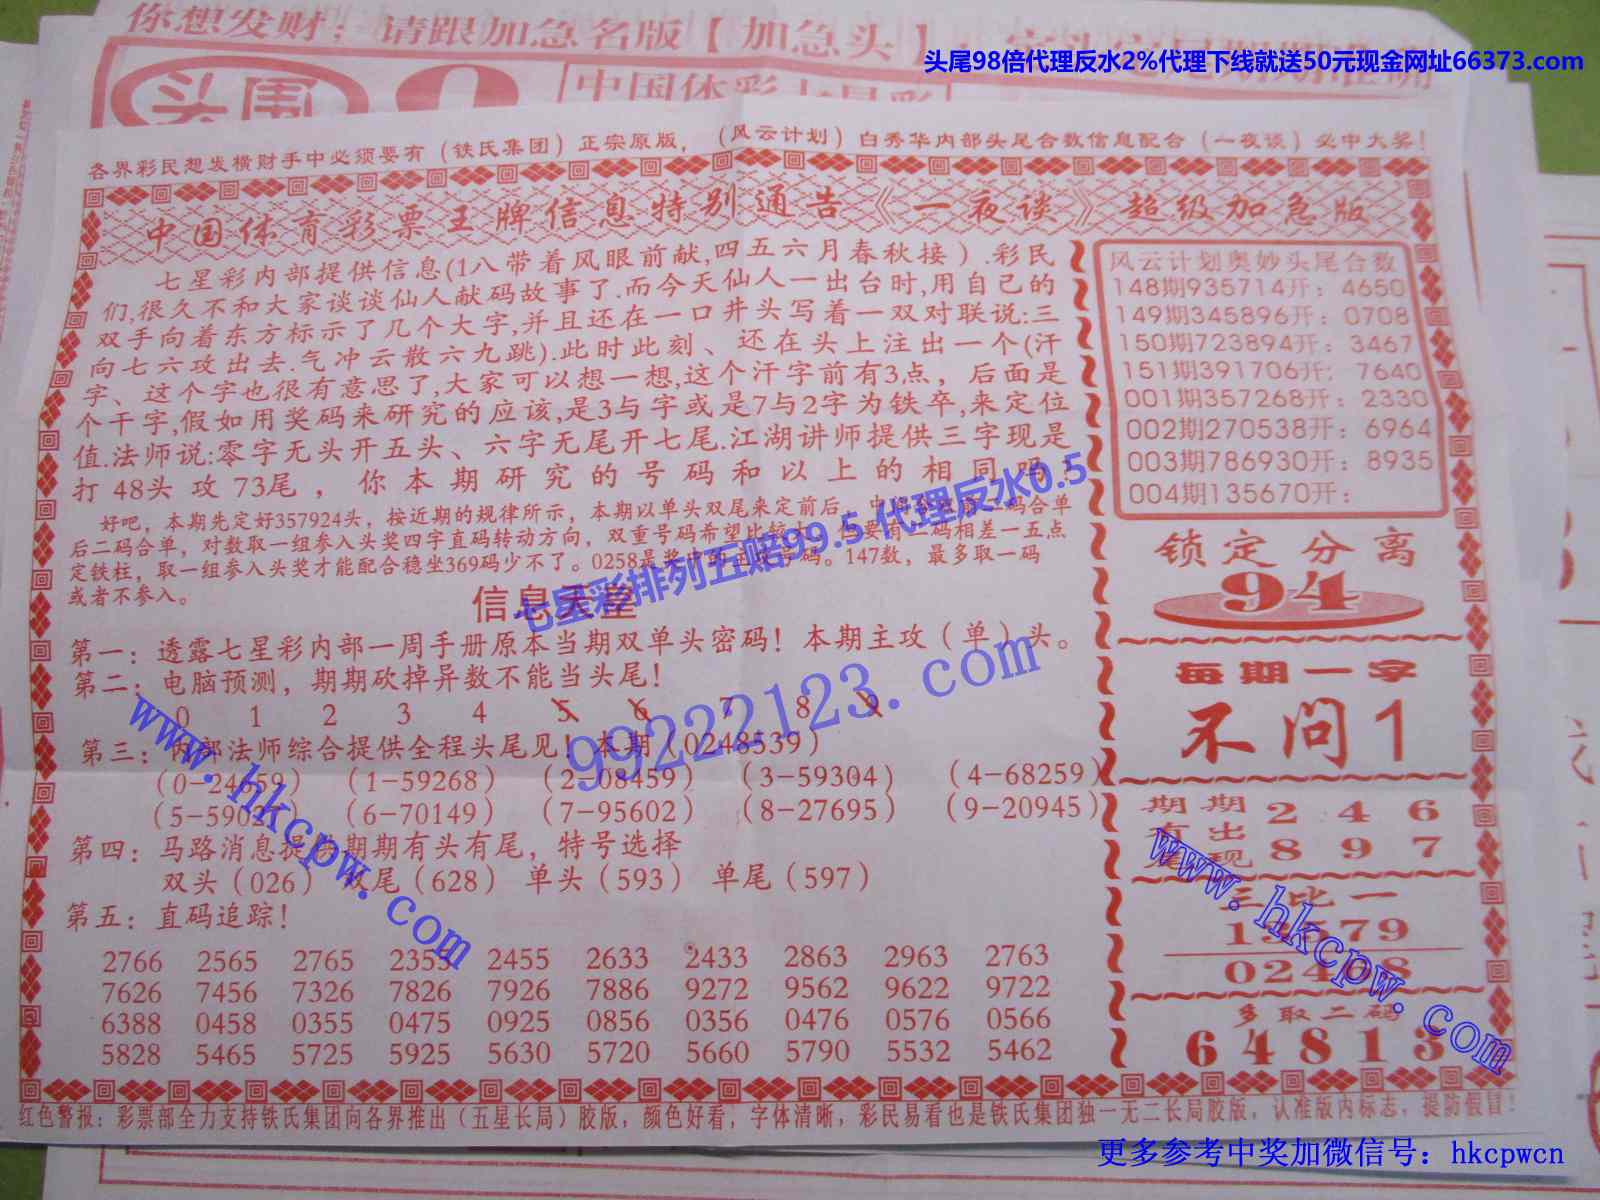 你想发财！请跟加急名版【加急头】
头尾98倍代理反水2%代理下线就送50元现金网址66373.com
头围
中国体彩七星彩
各界彩民想发横财手中必须要有（铁氏集团）正宗原版，（风云计划）白秀华内部头尾合数信息配合（一夜谈）必中大奖！
中国体育彩票王牌信息特别通告《一夜谈》超级加急版
七星彩内部提供信息(1八带着风眼前献,四五六月春秋接）.彩民
们,很久不和大家谈谈仙人献码故事了.而今天仙人一出台时,用自己的
双手向着东方标示了几个大字,并且还在一口井头写着一双对联说:三
向七六攻出去.气冲云散六九跳).此时此刻、还在头上注出一个(汗
字、这个字也很有意思了,大家可以想一想,这个汗字前有3点，后面是
个干字,假如用奖码来研究的应该,是3与字或是7与2字为铁卒,来定位
值.法师说:零字无头开五头、六字无尾开七尾.江湖讲师提供三字现是
打48头攻73尾，你本期研究的号码和以上的相同吗,
好吧，本期先定好357924头，按近期的规律所示，本期以单头双尾来定前后，中
码合单
后二码合单，对数取一组参入头奖四字直码转动方向，双重号码希望比较大，
要有二码相差一五点
定铁柱，取一组参入头奖才能配合稳坐369码少不了。0258是奖中的
码。147数，最多取一码
或者不参入。
七星彩排列五赔99.5代理反水0.5
信息天堂
第一：透露七星彩内部一周手册原本当期双单头密码！本期主攻（单）头。
第二：电脑预测，期期砍掉异数不能当头尾！
0 1 2 3 4 5 6 7 8 9
第三：内部法师综合提供全程头尾见！本期（0248539）
(0-24659) (1-59268) (2-08459) (3-59304) (4-68259)
(5-5902 ) (6-70149) (7-95602) (8-27695) (9-20945)
第四：马路消息提供期期有头有尾，特号选择
双头（026） 双尾（628） 单头（593） 单尾（597）
第五：直码追踪！
2766 2565 2765 2355 2455 2633 2433 2863 2963 2763
7626 7456 7326 7826 7926 7886 9272 9562 9622 9722
6388 0458 0355 0475 0925 0856 0356 0476 0576 0566
5828 5465 5725 5925 5630 5720 5660 5790 5532 5462
99222123.com
www.hkcpw.com
风云计划奥妙头尾合数
148期935714开：4650
149期345896开：0708
150期723894开：3467
151期391706开：7640
001期357268开：2330
002期270538开：6964
003期786930开：8935
004期135670开：
锁定分离
94
每期一字
不问1
期期 2 4 6
有出
尾现 8 9 7
三比一
13579
02468
多取二码
64813
www.hkcpw.com
红色警报：彩票部全力支持铁氏集团向各界推出（五星长局）胶版，颜色好看，字体清晰，彩民易看也是铁氏集团独一无二长局胶版，认准版内标志，提防假冒！
更多参考中奖加微信号：hkcpwcn